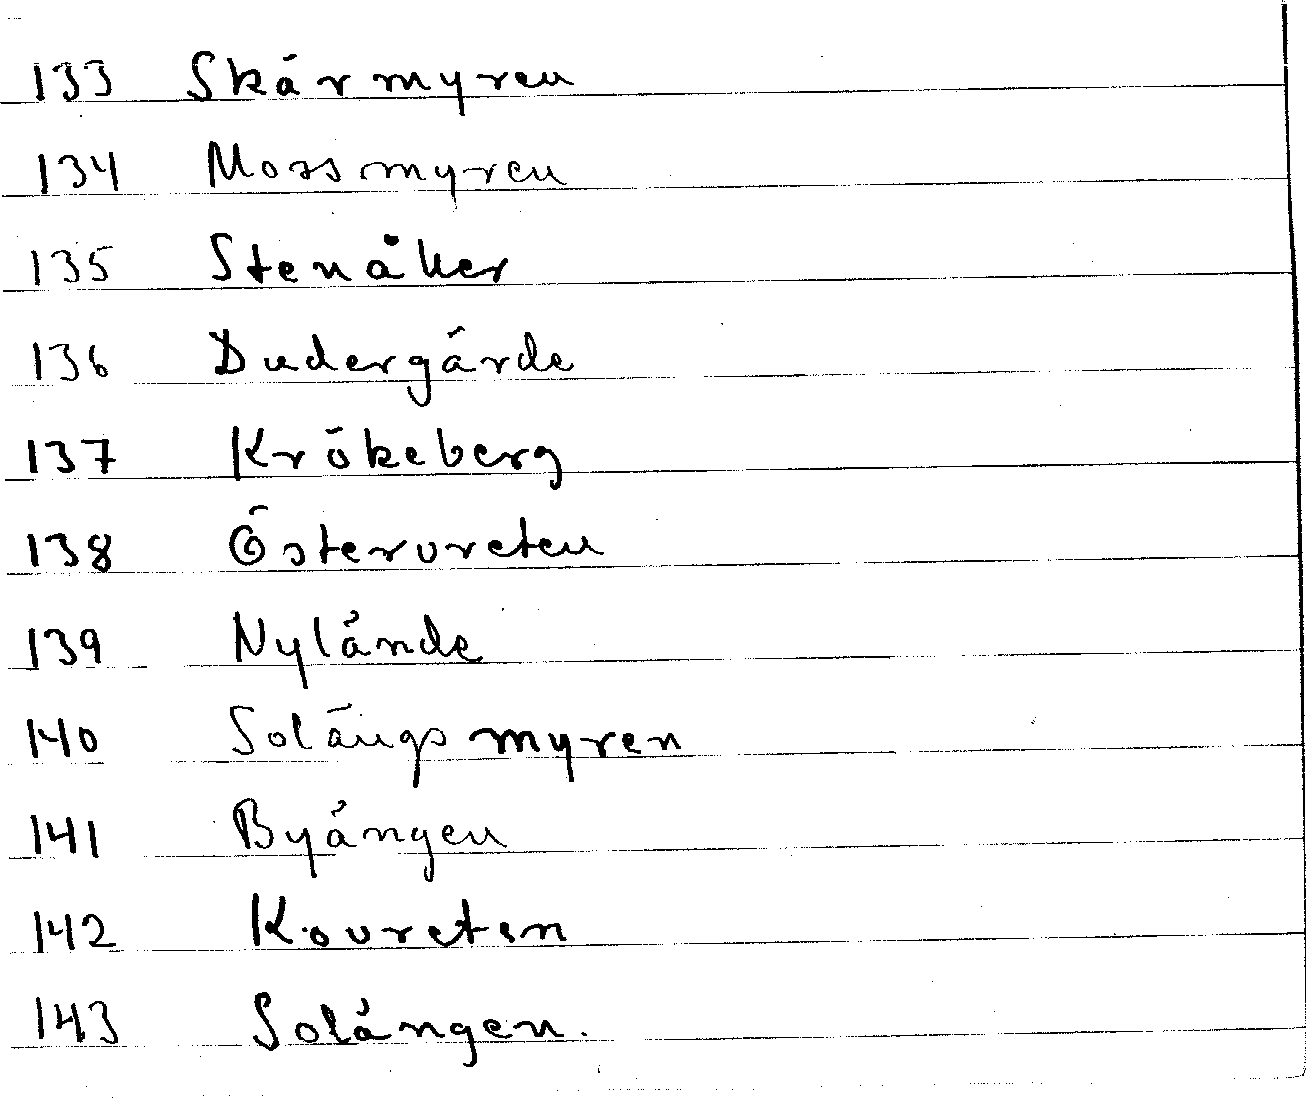 133 Skärmyren
134 Mossmyren
135 Stenåker
136 Dudergärde
137 Krökeberg
138 Östervreten
139 Nylände
140 Solängsmyren
141 Byängen
142 Kovreten
143 Solängen.